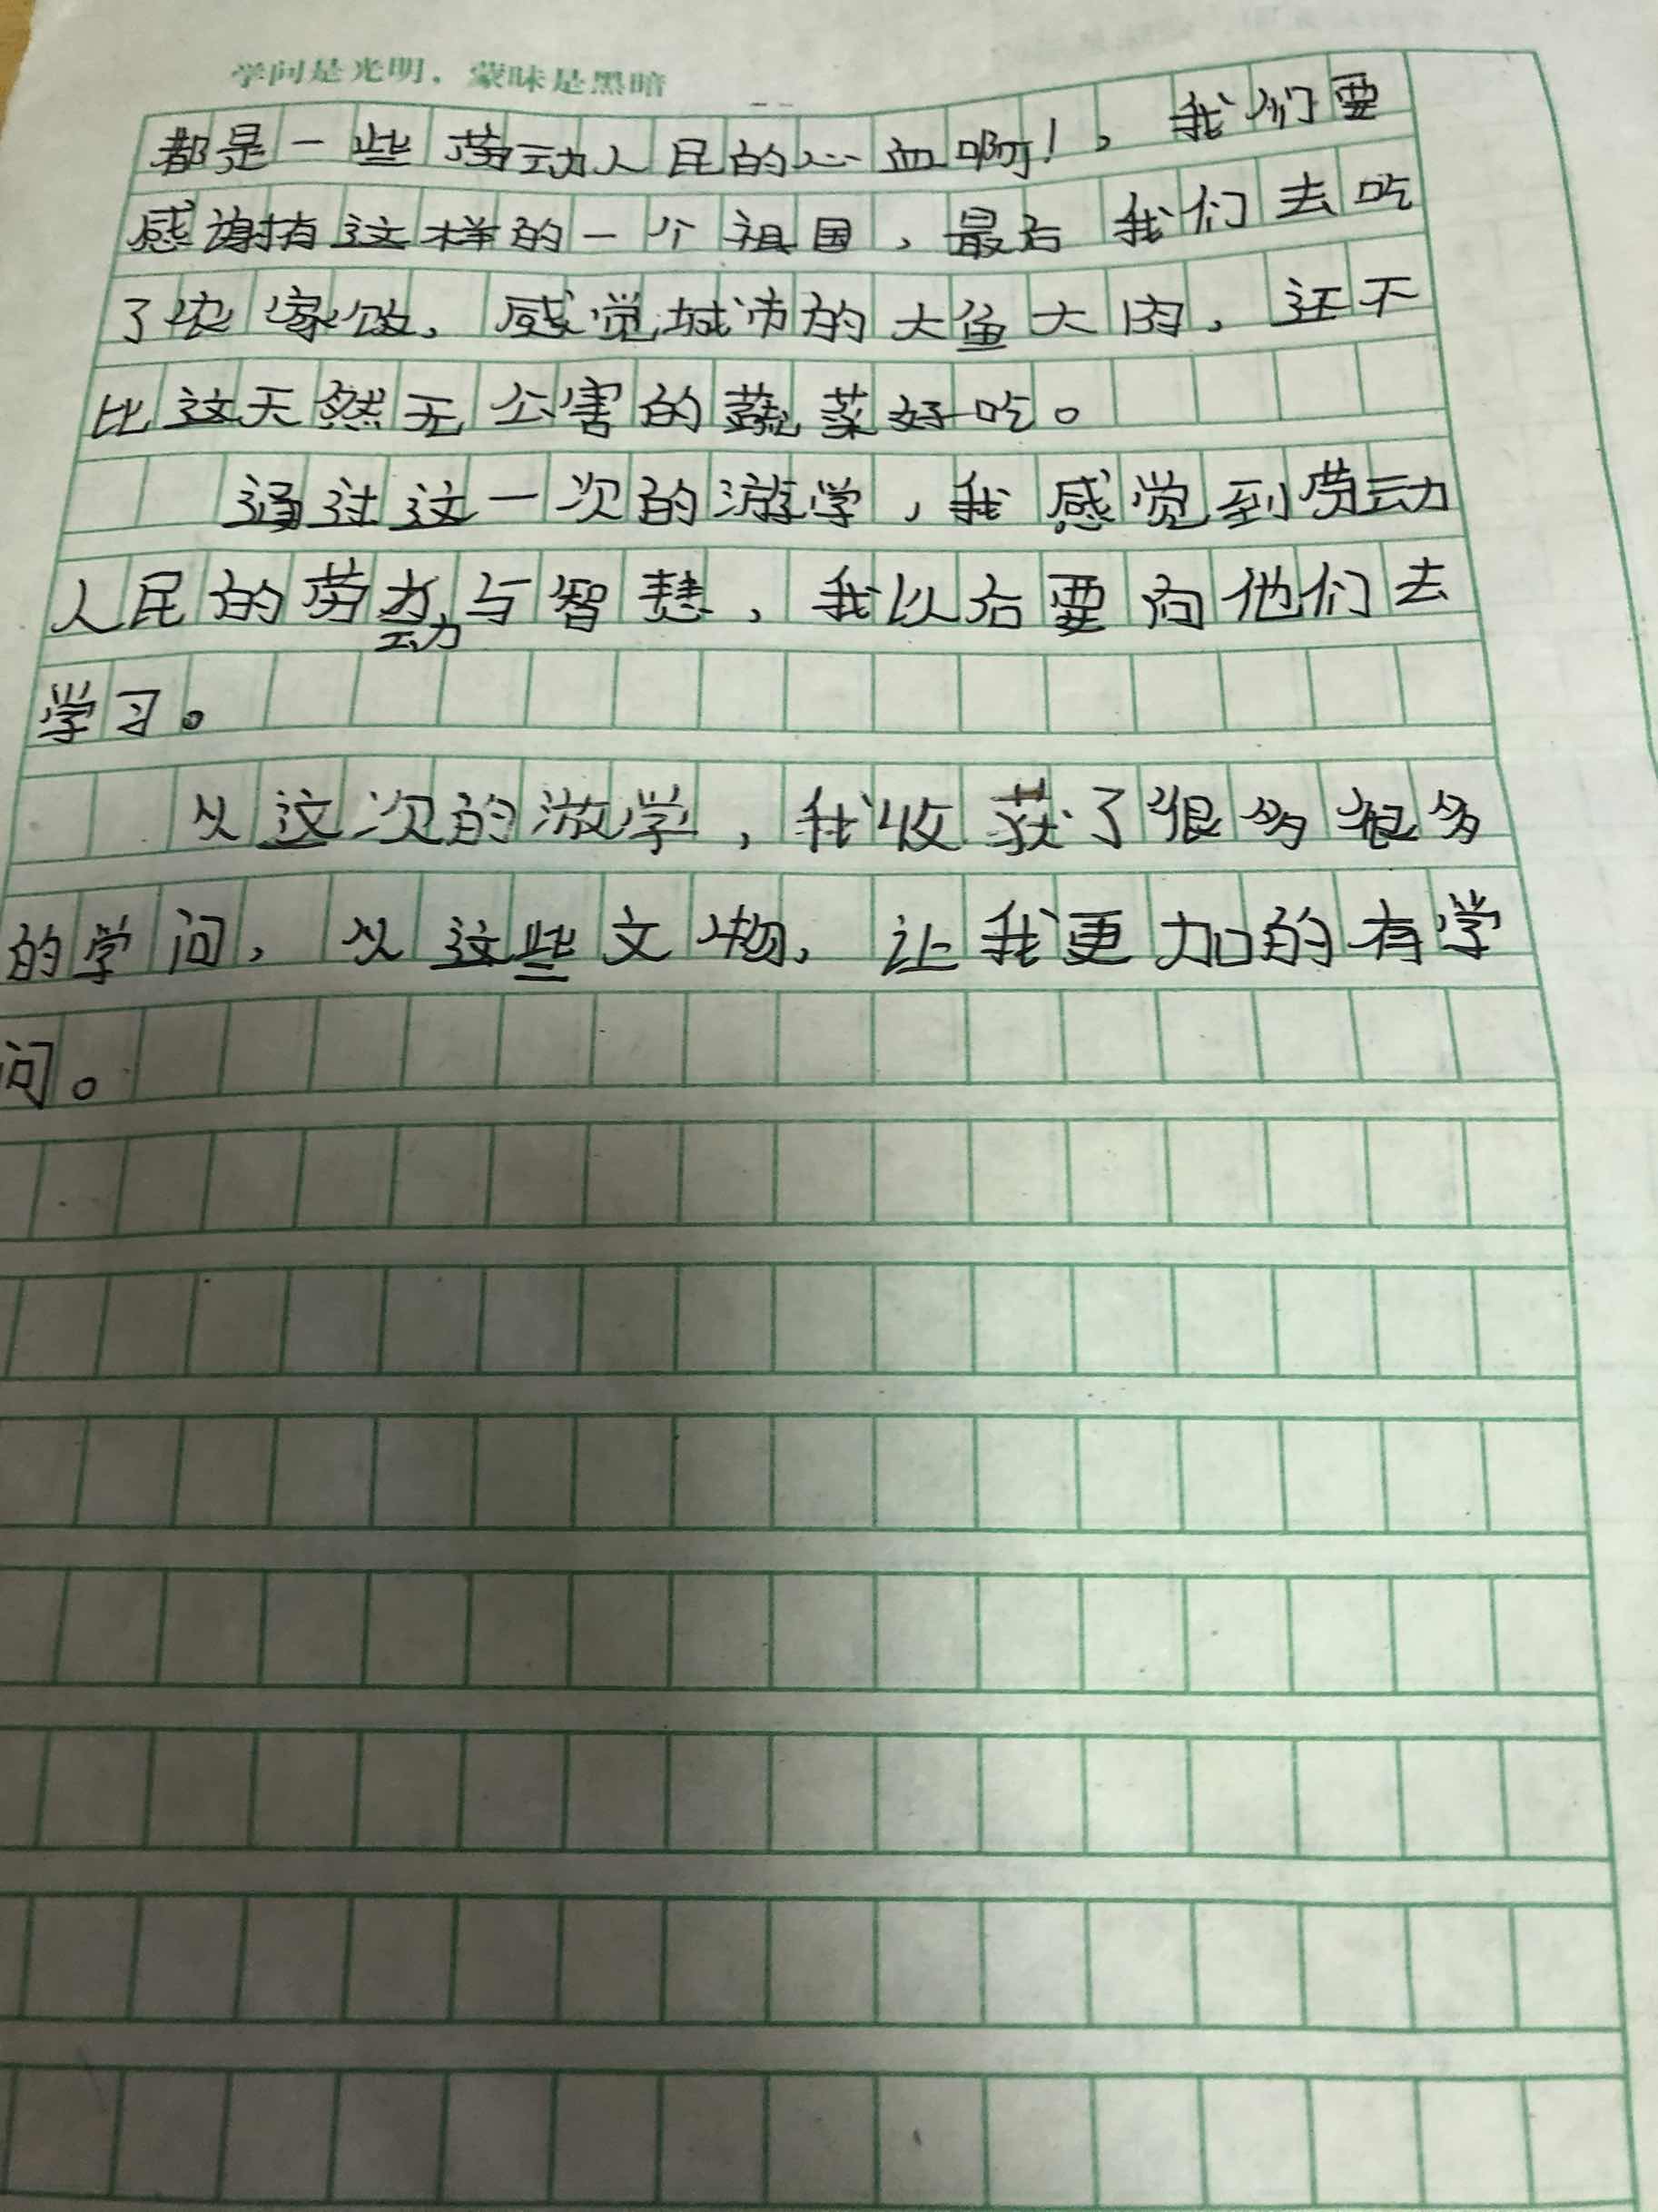 学问是光明，蒙昧是黑暗
都是一些劳动人民的心血啊！，我们要
感谢有这样的一个祖国，最后我们去吃
了农家饭，感觉城市的大鱼大肉，还不
比这天然无公害的蔬菜好吃。
通过这一次的游学，我感觉到劳动
人民的劳动与智慧，我以后要向他们去
学习。
从这次的游学，我收获了很多很多
的学问，从这些文物，让我更加的有学
问。